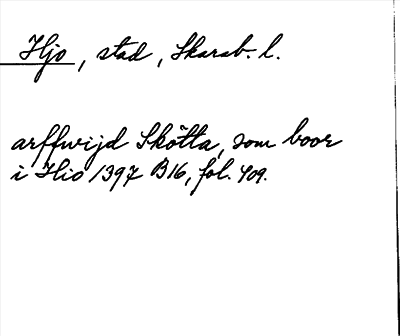 Hjo, stad, Skarab. l.
arffwijd Skötta, som boor
i Hio 1397 B16, fol. 409.